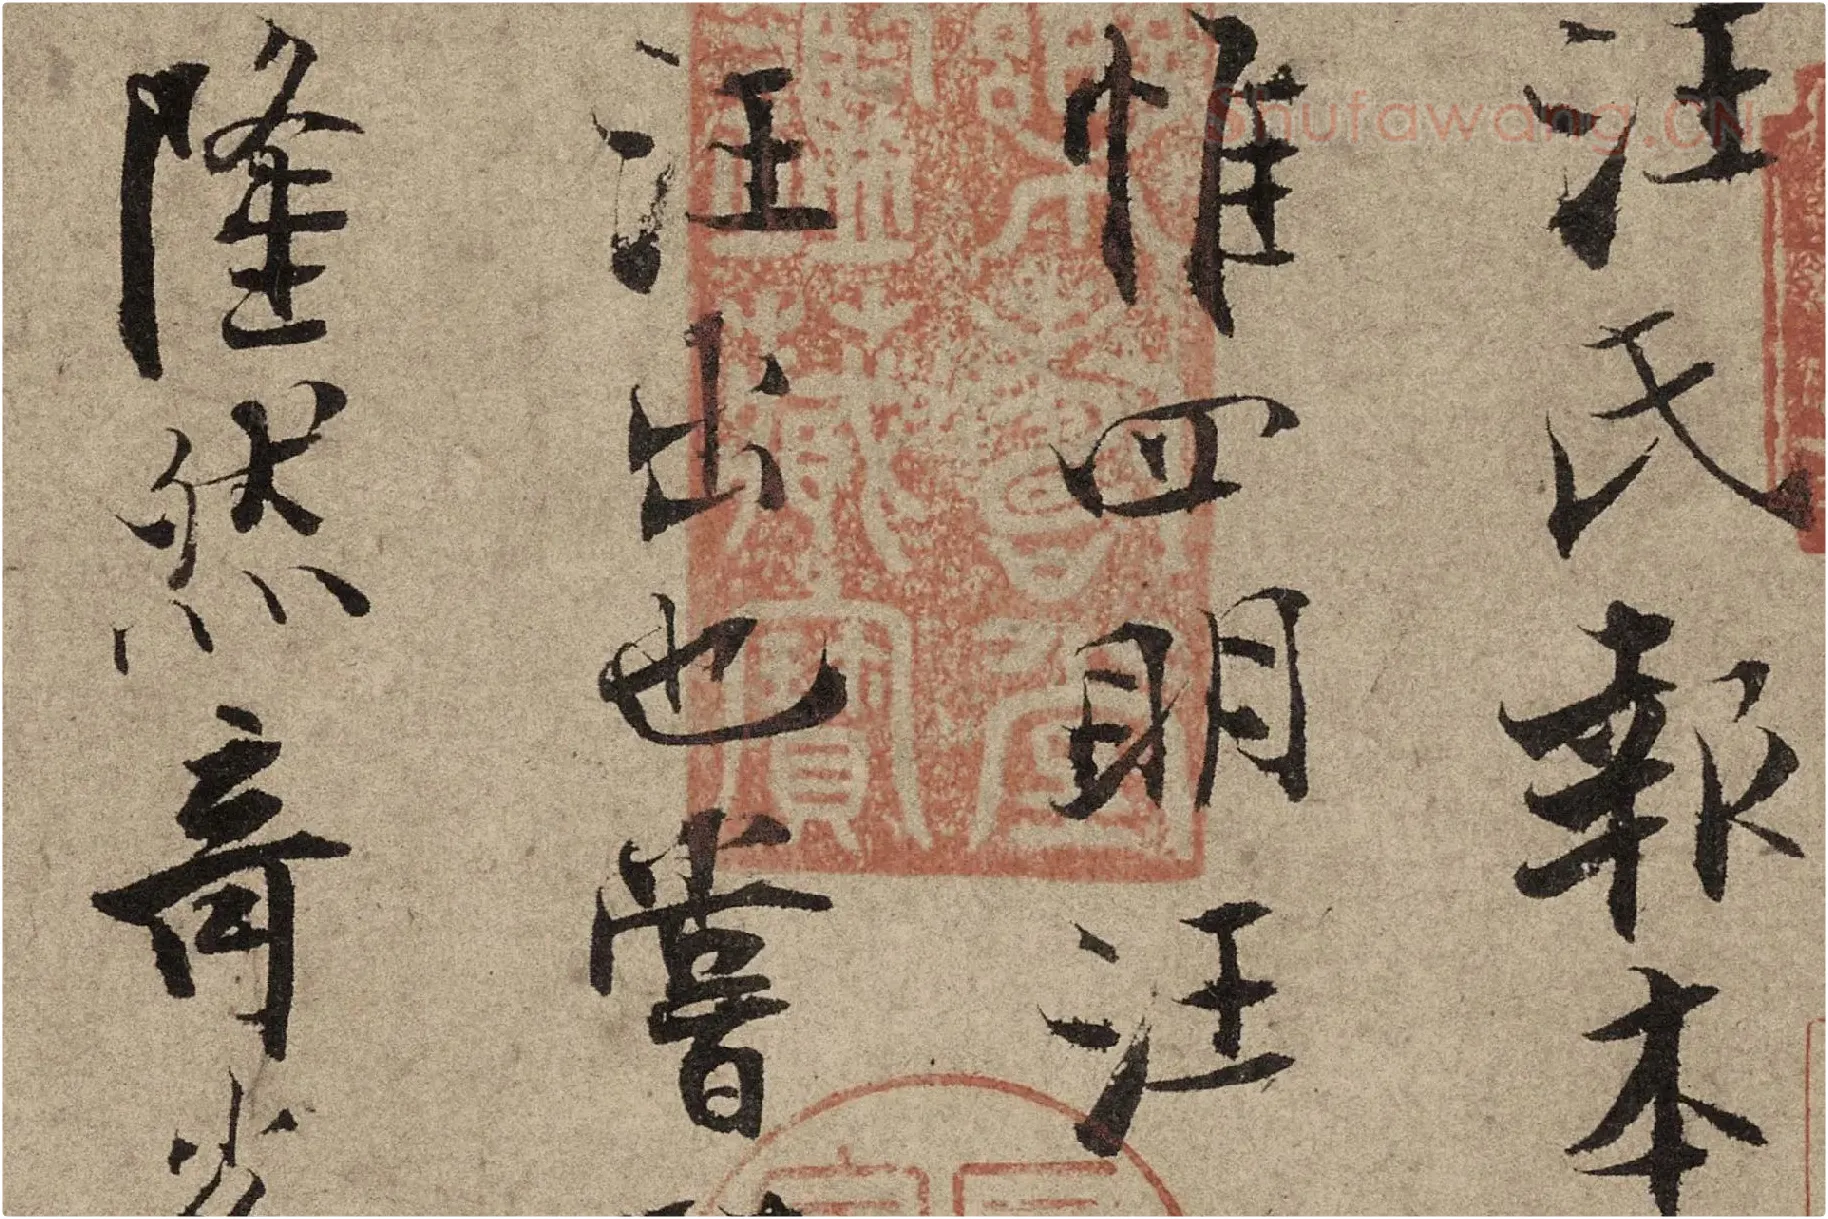 汪氏報本
惟四明汪
汪出也嘗
隆然竒
Shufawang.CN